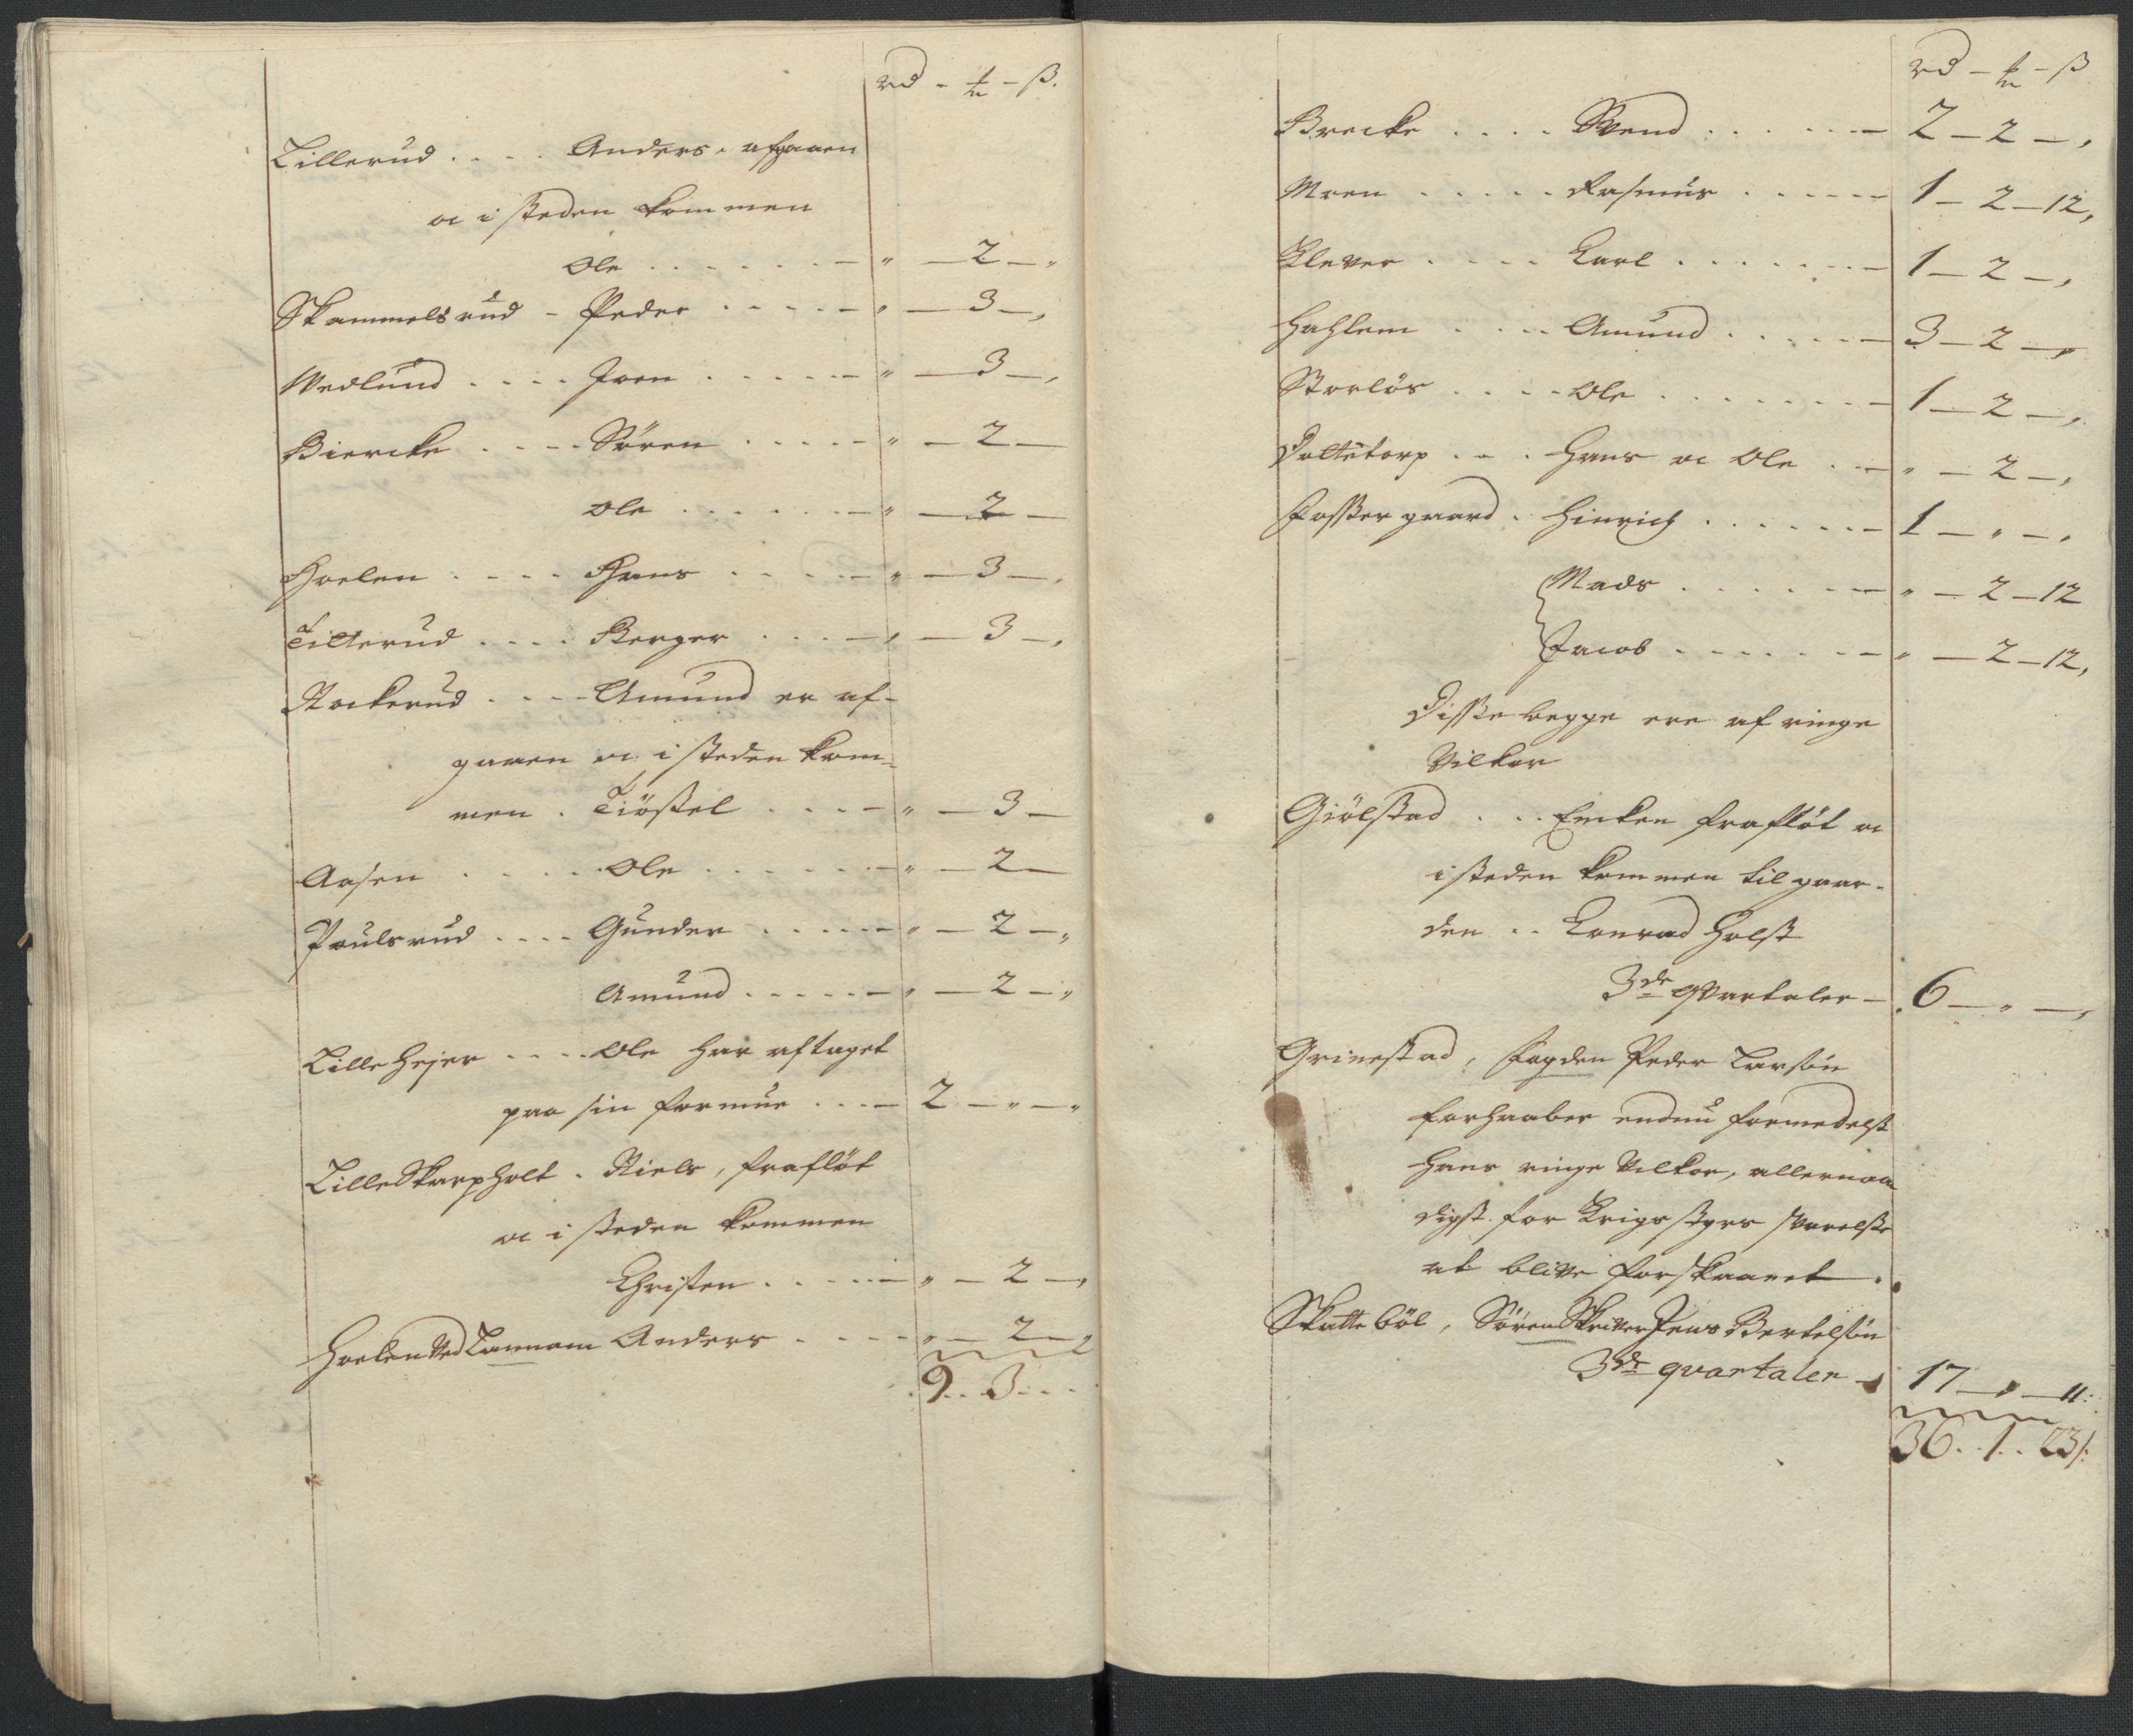 rd - ₶ - ß.
Lillerud . . . . Anders, afgaaen
oc i steden kommen
Ole . . . . . . - „ - 2 - „
Skammelsrud - Peder . . . . . - „ - 3 - ,
Wedlund . . . . Joen . . . . . - „ - 3 - ,
Biercke . . . . Sören . . . . . - „ - 2 -
Ole . . . . . . - „ - 2 -
Hoelen . . . . Hans . . . . - „ - 3 - ,
Tilterud . . . . Berger . . . - , - 3 - ,
Stockerud . . . . Amund er af-
gaaen oc i steden kom-
men . Tiöstel . . . . - „ - 3 -
Aasen . . . . . Ole . . . . . . - „ - 2 -
Poulsrud . . . . Gunder . . . . . - „ - 2 - „
Amund . . . . . - „ - 2 - „
Lille Hejer . . . . Ole har aftaget
paa sin formue . . . - 2 - „ - „
Lille Skarpholt . Niels, frafløt
oc i steden kommen
Christen . . . . . - „ - 2 - ,
Hoelen Ved Lannem Anders . . . . „ - 2 - ,
9 . . 3 . . .
rd - ₶ - ß
Brecke . . . . Svend . . . . . . - 2 - 2 - ,
Moen . . . . . Rasmus . . . . . - 1 - 2 - 12,
Klever . . . . Carl . . . . . . - 1 - 2 - ,
Hahlem . . . . Amund . . . . . - 3 - 2 - ,
Storlös . . . . Ole . . . . . . . - 1 - 2 - ,
Doltetorp . . . Hans oc Ole . . - „ - 2 - ,
Fosser gaard . Hinrich . . . . . . - 1 - „ - „
Mads . . . . . . - „ - 2 - 12
Jacob . . . . . . - „ - 2 - 12,
Disse begge ere af ringe
Vilkor
Giölstad . . . Encken frafløt oc
i steden kommen til gaar-
den . . Conrad Holst
3de qvartaler - 6 - „ - ,
Grinestad, Fogden Peder Larsøn
forhaaber endnu formedelst
Hans ringe Vilkor, allernaa
digst for Krigs styrs svarelse
at blive forskaanet .
Skattebøl, Sören Skriver Jens Bertelsøn
3de qvartaler - 17 - , - 11 :
36 . . 1 . . 23 /: